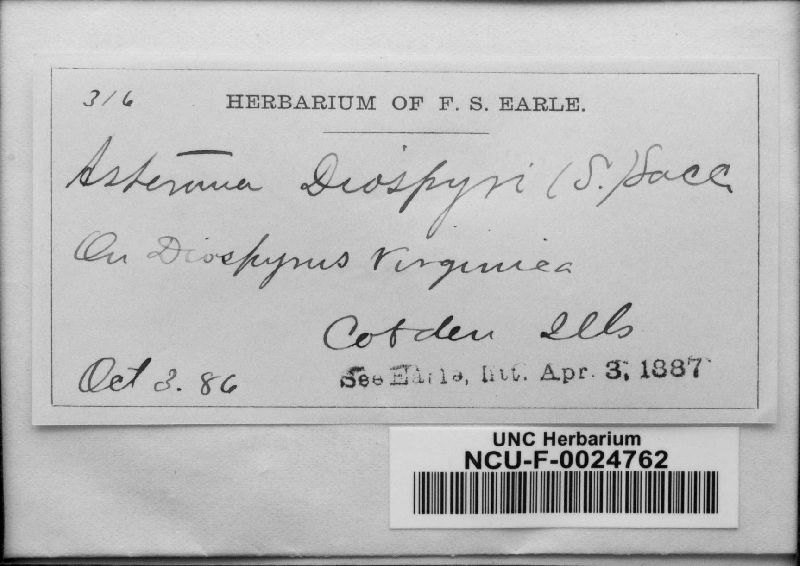 316 HERBARIUM OF F. S. EARLE.
Asteroma Diospyri (S.) Sacc.
On Diospyrus Virginica
Cobden Ills
Oct 3. 86
See Earle, litt. Apr. 3, 1887
UNC Herbarium
NCU-F-0024762